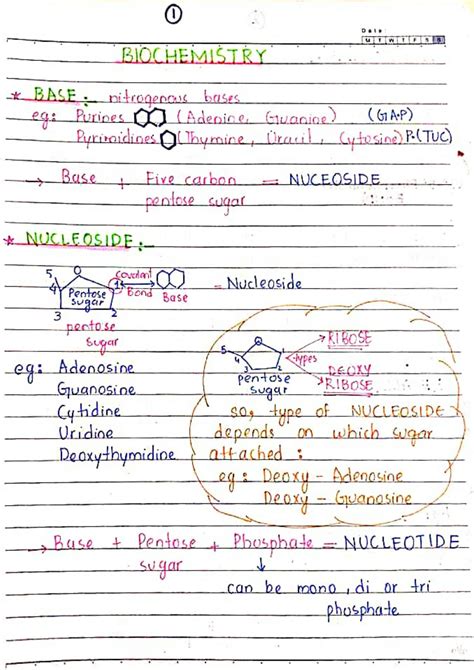 1
Date:
M T W T F S S
BIOCHEMISTRY
* BASE:- nitrogenous bases
eg: Purines (Adenine, Guanine) (GAP)
Pyrimidines (Thymine, Uracil, Cytosine) P-(TUC)
→ Base + Five carbon pentose sugar = NUCEOSIDE
* NUCLEOSIDE:-
5 4 3 2 1 O Pentose sugar Covalent Bond Base = Nucleoside
pentose sugar
eg: Adenosine
Guanosine
Cytidine
Uridine
Deoxythymidine
5 4 3 2 1 O pentose sugar types → RIBOSE
DEOXY RIBOSE
so, type of NUCLEOSIDE
depends on which sugar
attached:
eg: Deoxy - Adenosine
Deoxy - Guanosine
→ Base + Pentose sugar + Phosphate = NUCLEOTIDE
↓
can be mono, di or tri
phosphate